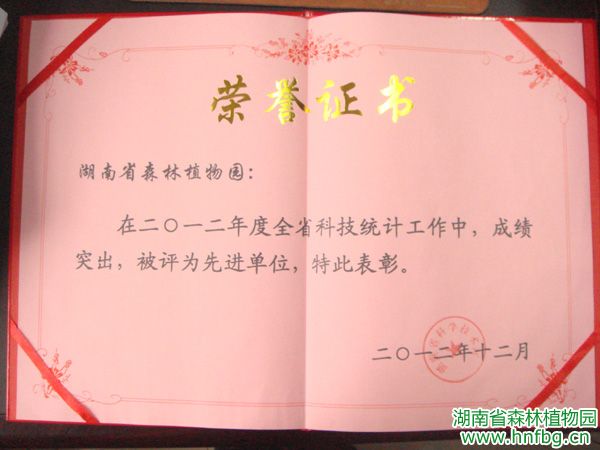 荣誉证书
湖南省森林植物园：
在二〇一二年度全省科技统计工作中，成绩
突出，被评为先进单位，特此表彰。
二〇一二年十二月
湖南省森林植物园
www.hnfbg.cn